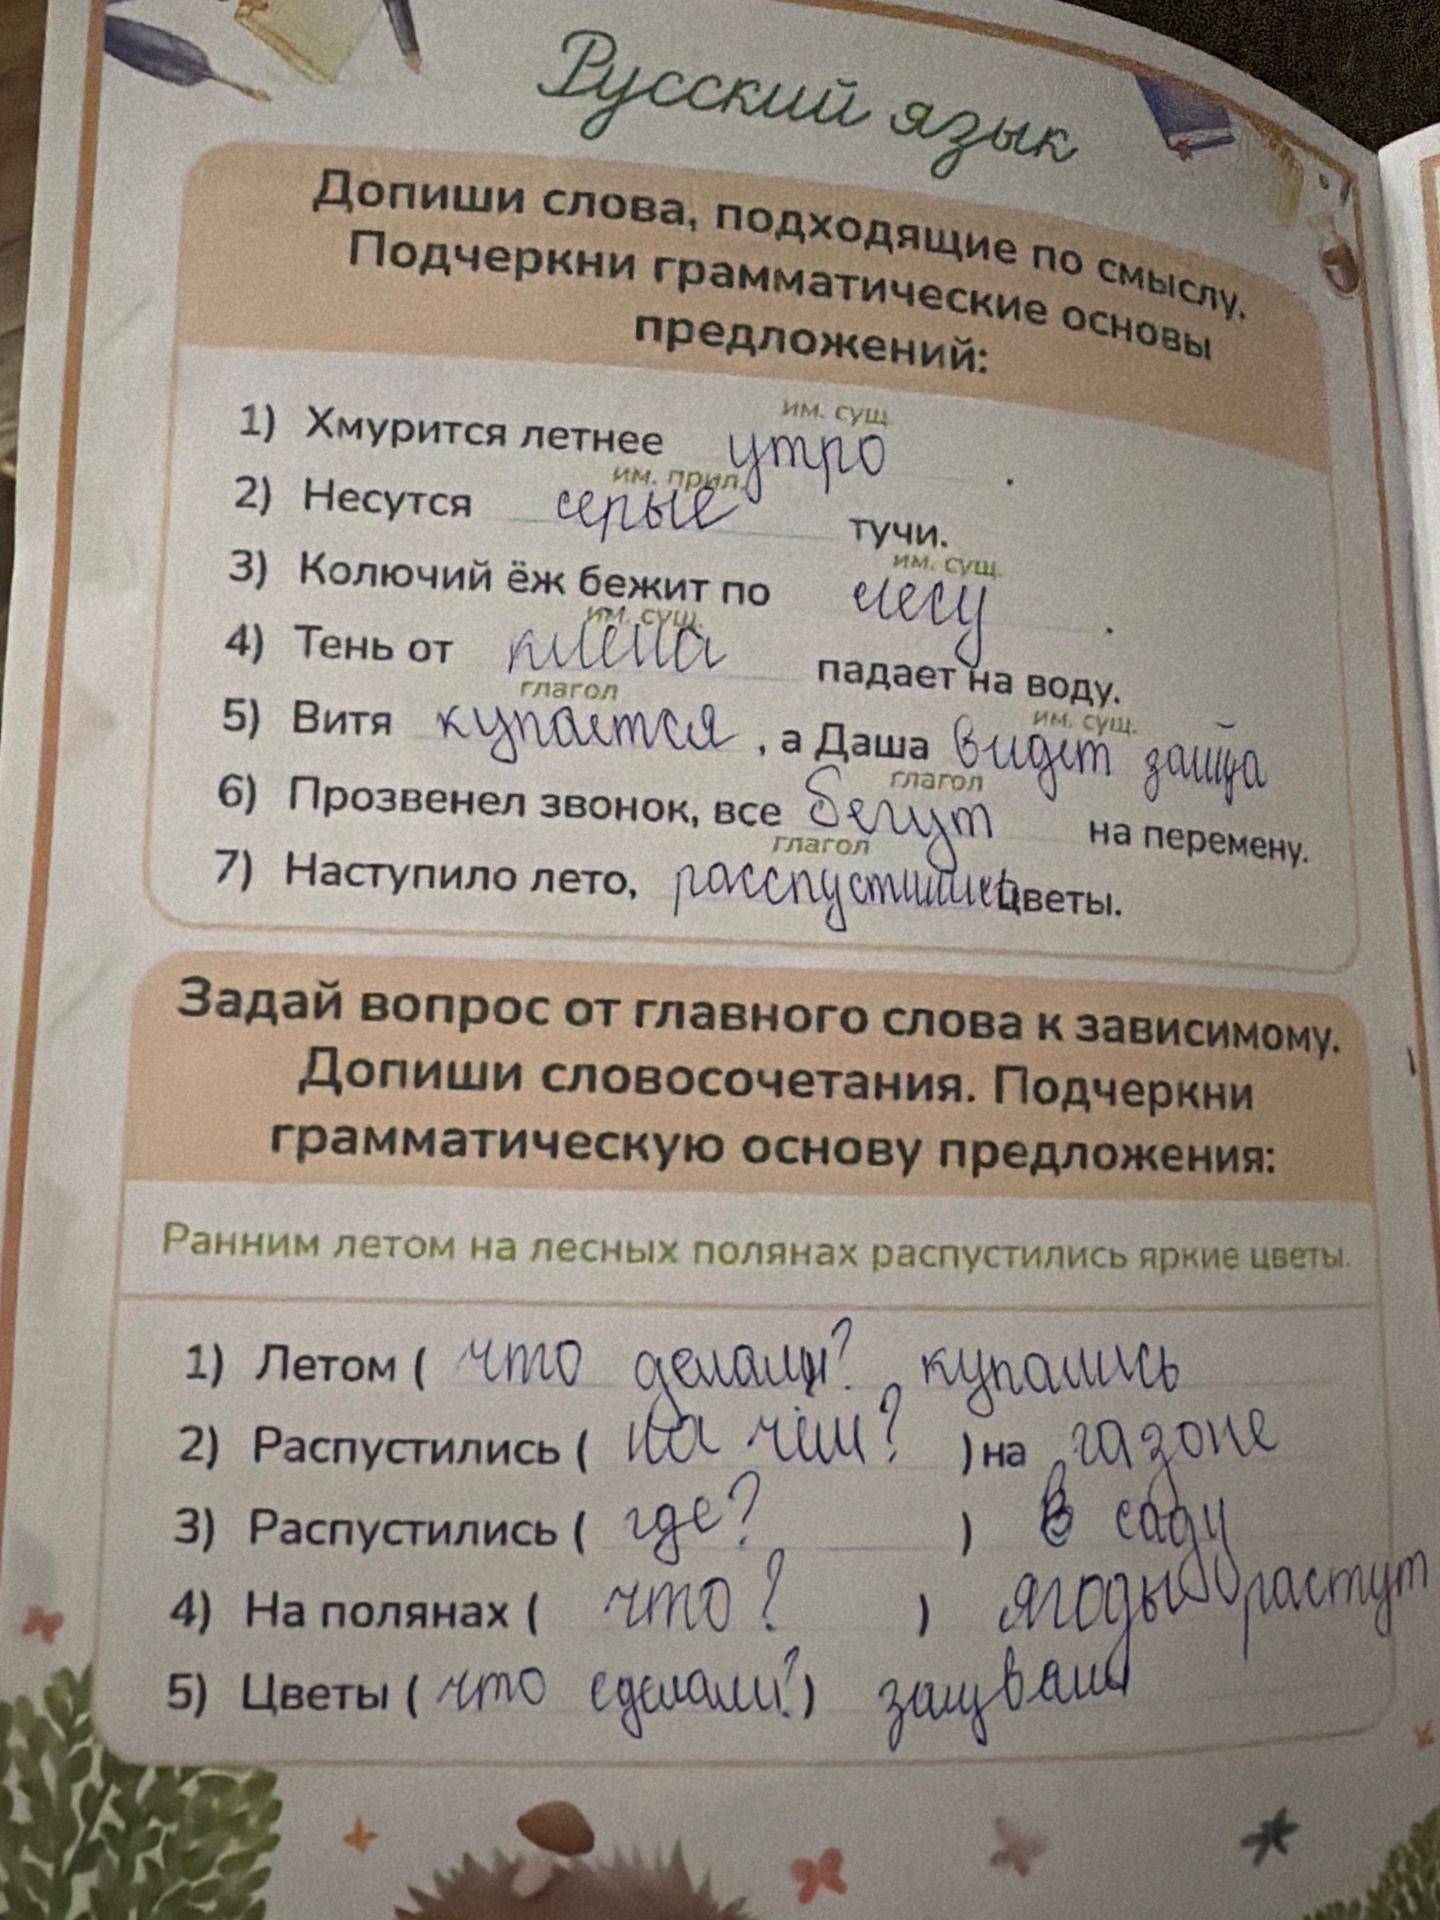 Русский язык
Допиши слова, подходящие по смыслу.
Подчеркни грамматические основы
предложений:
им. сущ.
1) Хмурится летнее утро .
им. прил.
2) Несутся серые тучи.
им. сущ.
3) Колючий ёж бежит по лесу .
им. сущ.
4) Тень от клёна падает на воду.
глагол им. сущ.
5) Витя купается , а Даша видет зайца
глагол
6) Прозвенел звонок, все бегут на перемену.
глагол
7) Наступило лето, расспустились цветы.
Задай вопрос от главного слова к зависимому.
Допиши словосочетания. Подчеркни
грамматическую основу предложения:
Ранним летом на лесных полянах распустились яркие цветы.
1) Летом ( что делали? купались
2) Распустились ( на чём? ) на газоне
3) Распустились ( где? ) в саду
4) На полянах ( что? ) ягоды растут
5) Цветы ( что сделали? )